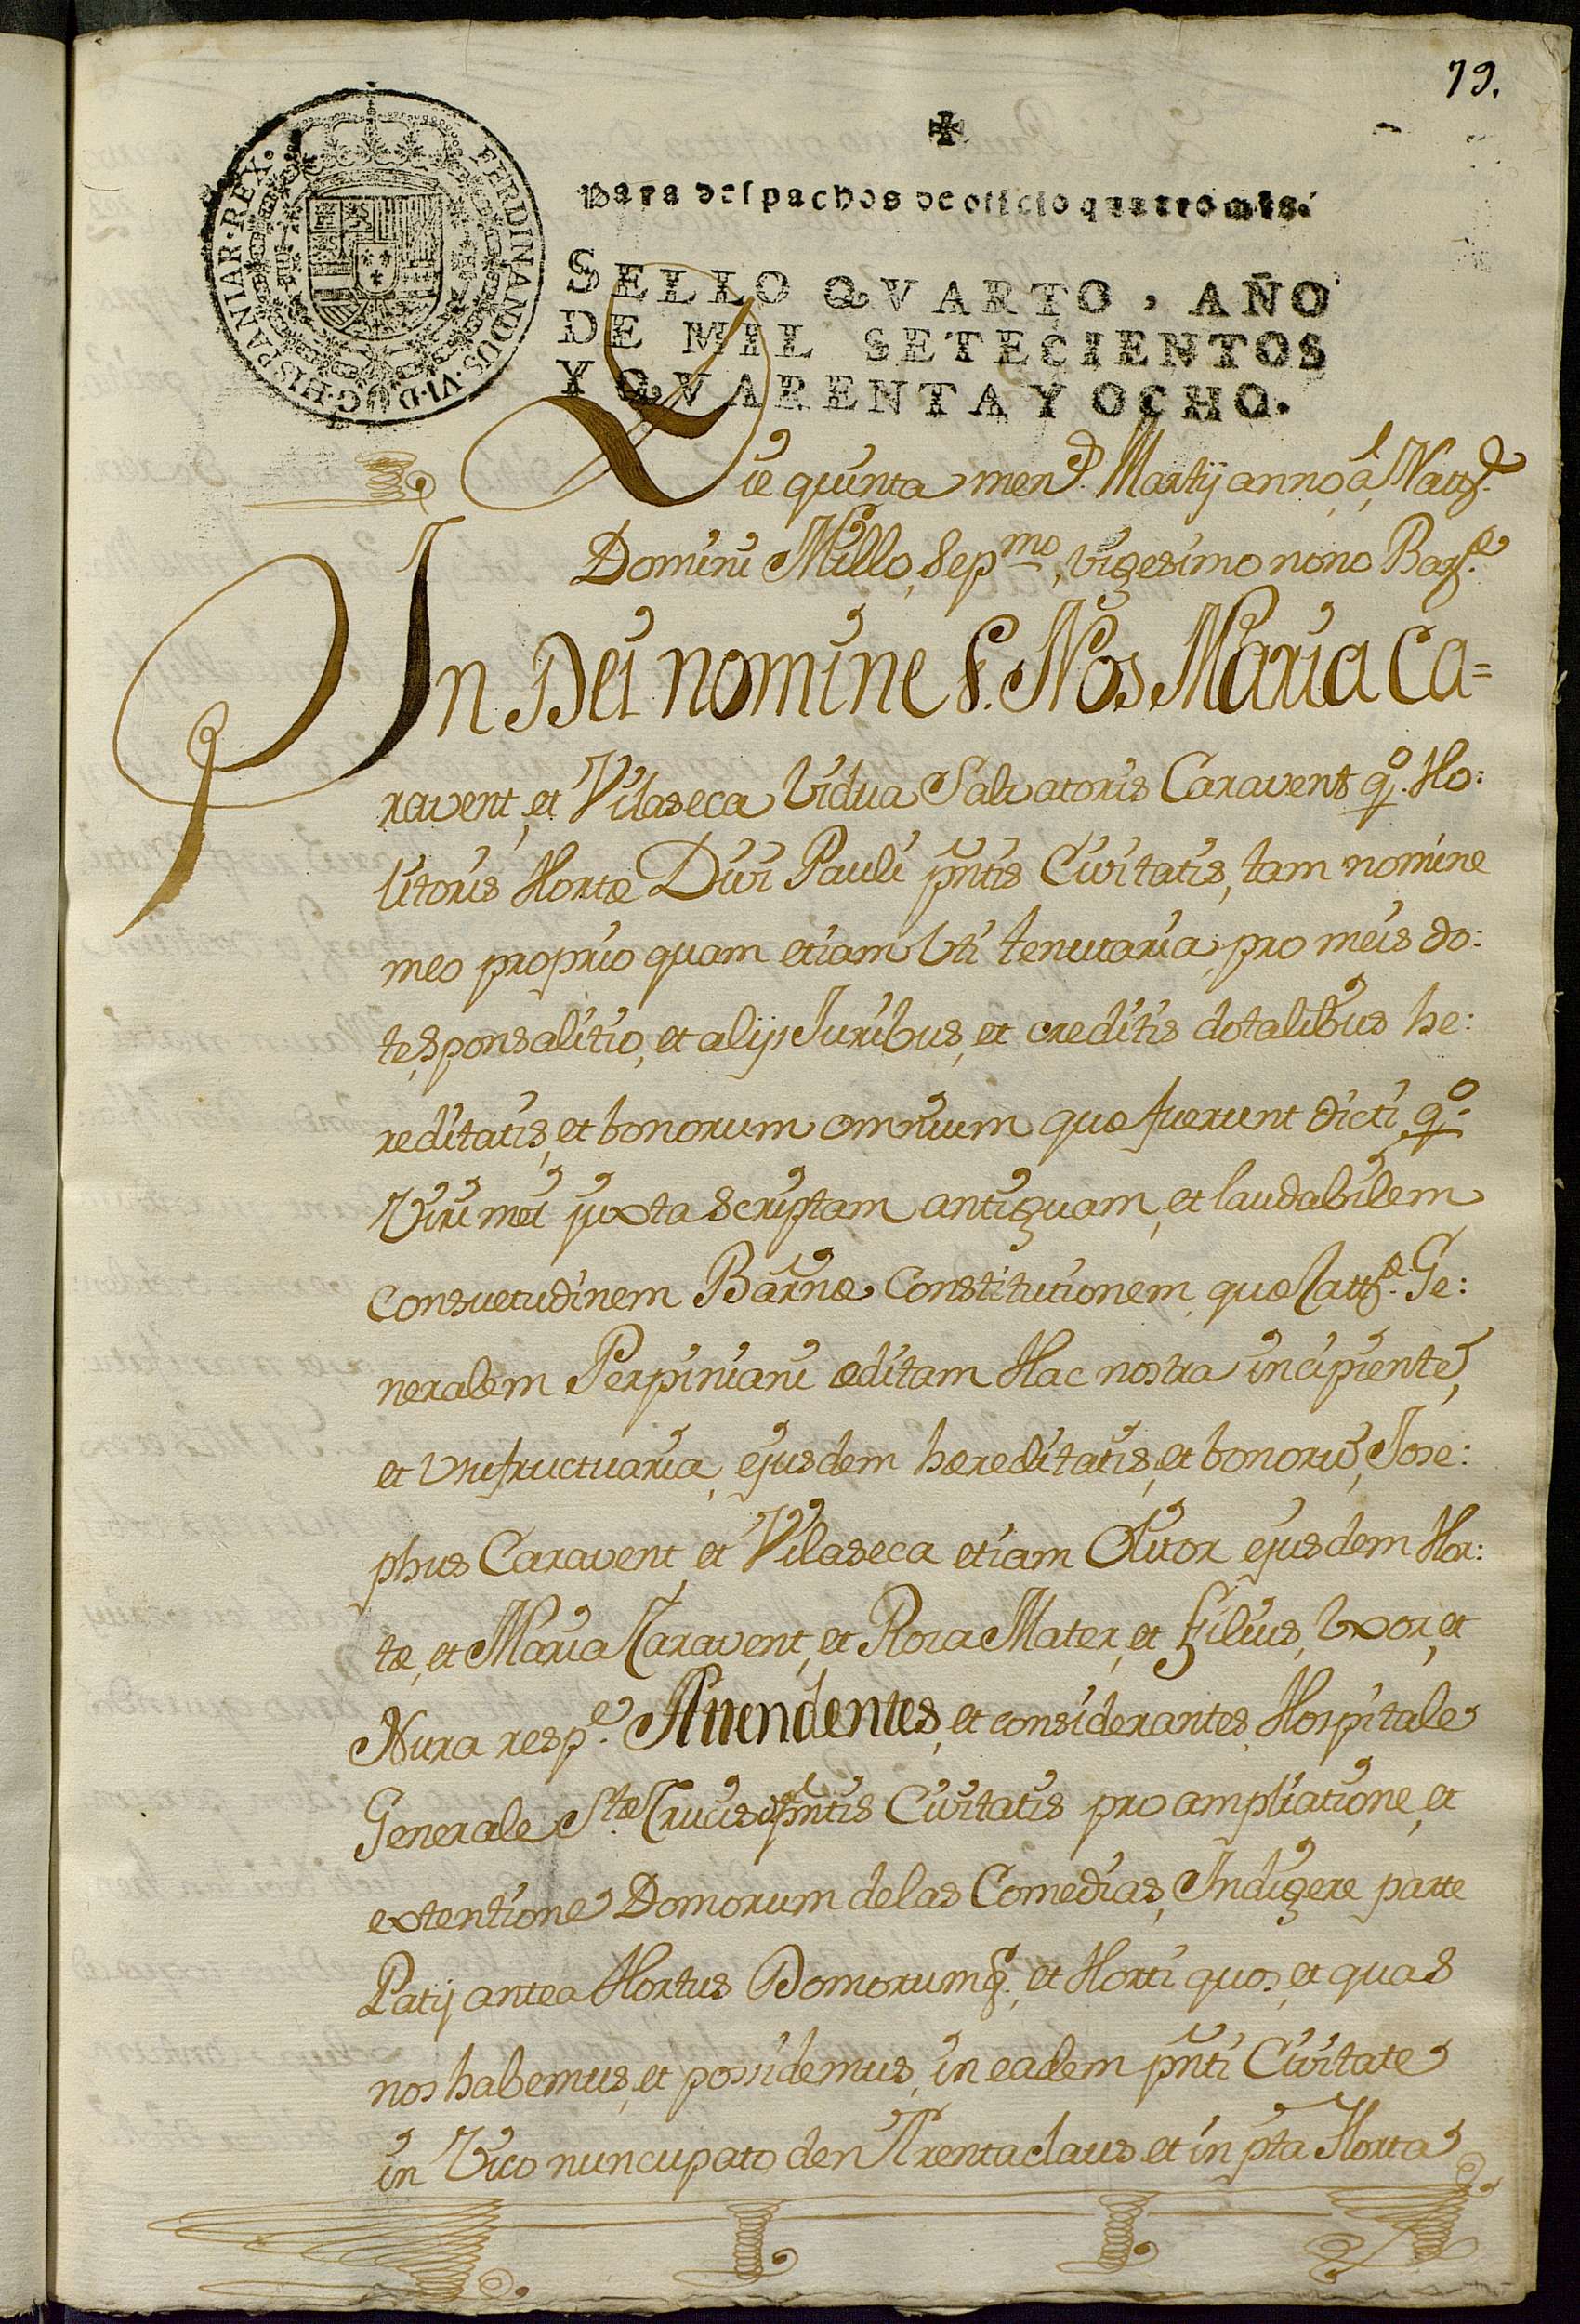 79.
✠
Para despachos de oficio quatro mrs.
FERDINANDUS·VI·D·G·HISPANIAR·REX·
SELLO QVARTO, AÑO
DE MIL SETECIENTOS
Y QVARENTA Y OCHO.
Die quinta mens. Martij anno, â, Natte.
Domini Millo, Sepmo, vigesimo nono Barne
In Dei nomine &. Nos Maria Ca=
ravent, et Vilaseca Vidua Salvatoris Caravent qo. Ho:
litoris Hortæ Divi Pauli pñtis Civitatis, tam nomine
meo proprio quam etiam Uti tenutaria, pro meis do:
te, sponsalitio, et alijs Juribus, et creditis dotalibus he:
reditatis, et bonorum omnium quæ fuerunt dicti qo.
Viri mei juxta scriptam antiquam, et laudabilem
consuetudinem Barnæ Constitutionem, quæ Catte. Ge:
neralem Perpiniani æditam Hac nostra incipiente,
et Usufructuaria, ejusdem hæreditatis, et bonorũ, Jose:
phus Caravent, et Vilaseca etiam Olitor ejusdem Hor:
tæ, et Maria Caravent, et Rosa Mater, et Filius, Uxor, et
Nura respe. Attendentes, et considerantes, Hospitale
Generale Stæ Crucis pñtis Civitatis pro ampliatione, et
extentione Domorum de las Comedias, Indigere parte
Patij antea Hortus Domorumq. et Horti quos, et quas
nos habemus, et possidemus, in eadem pñti Civitate
in Vico nuncupato den Trentaclaus et in pta Horta